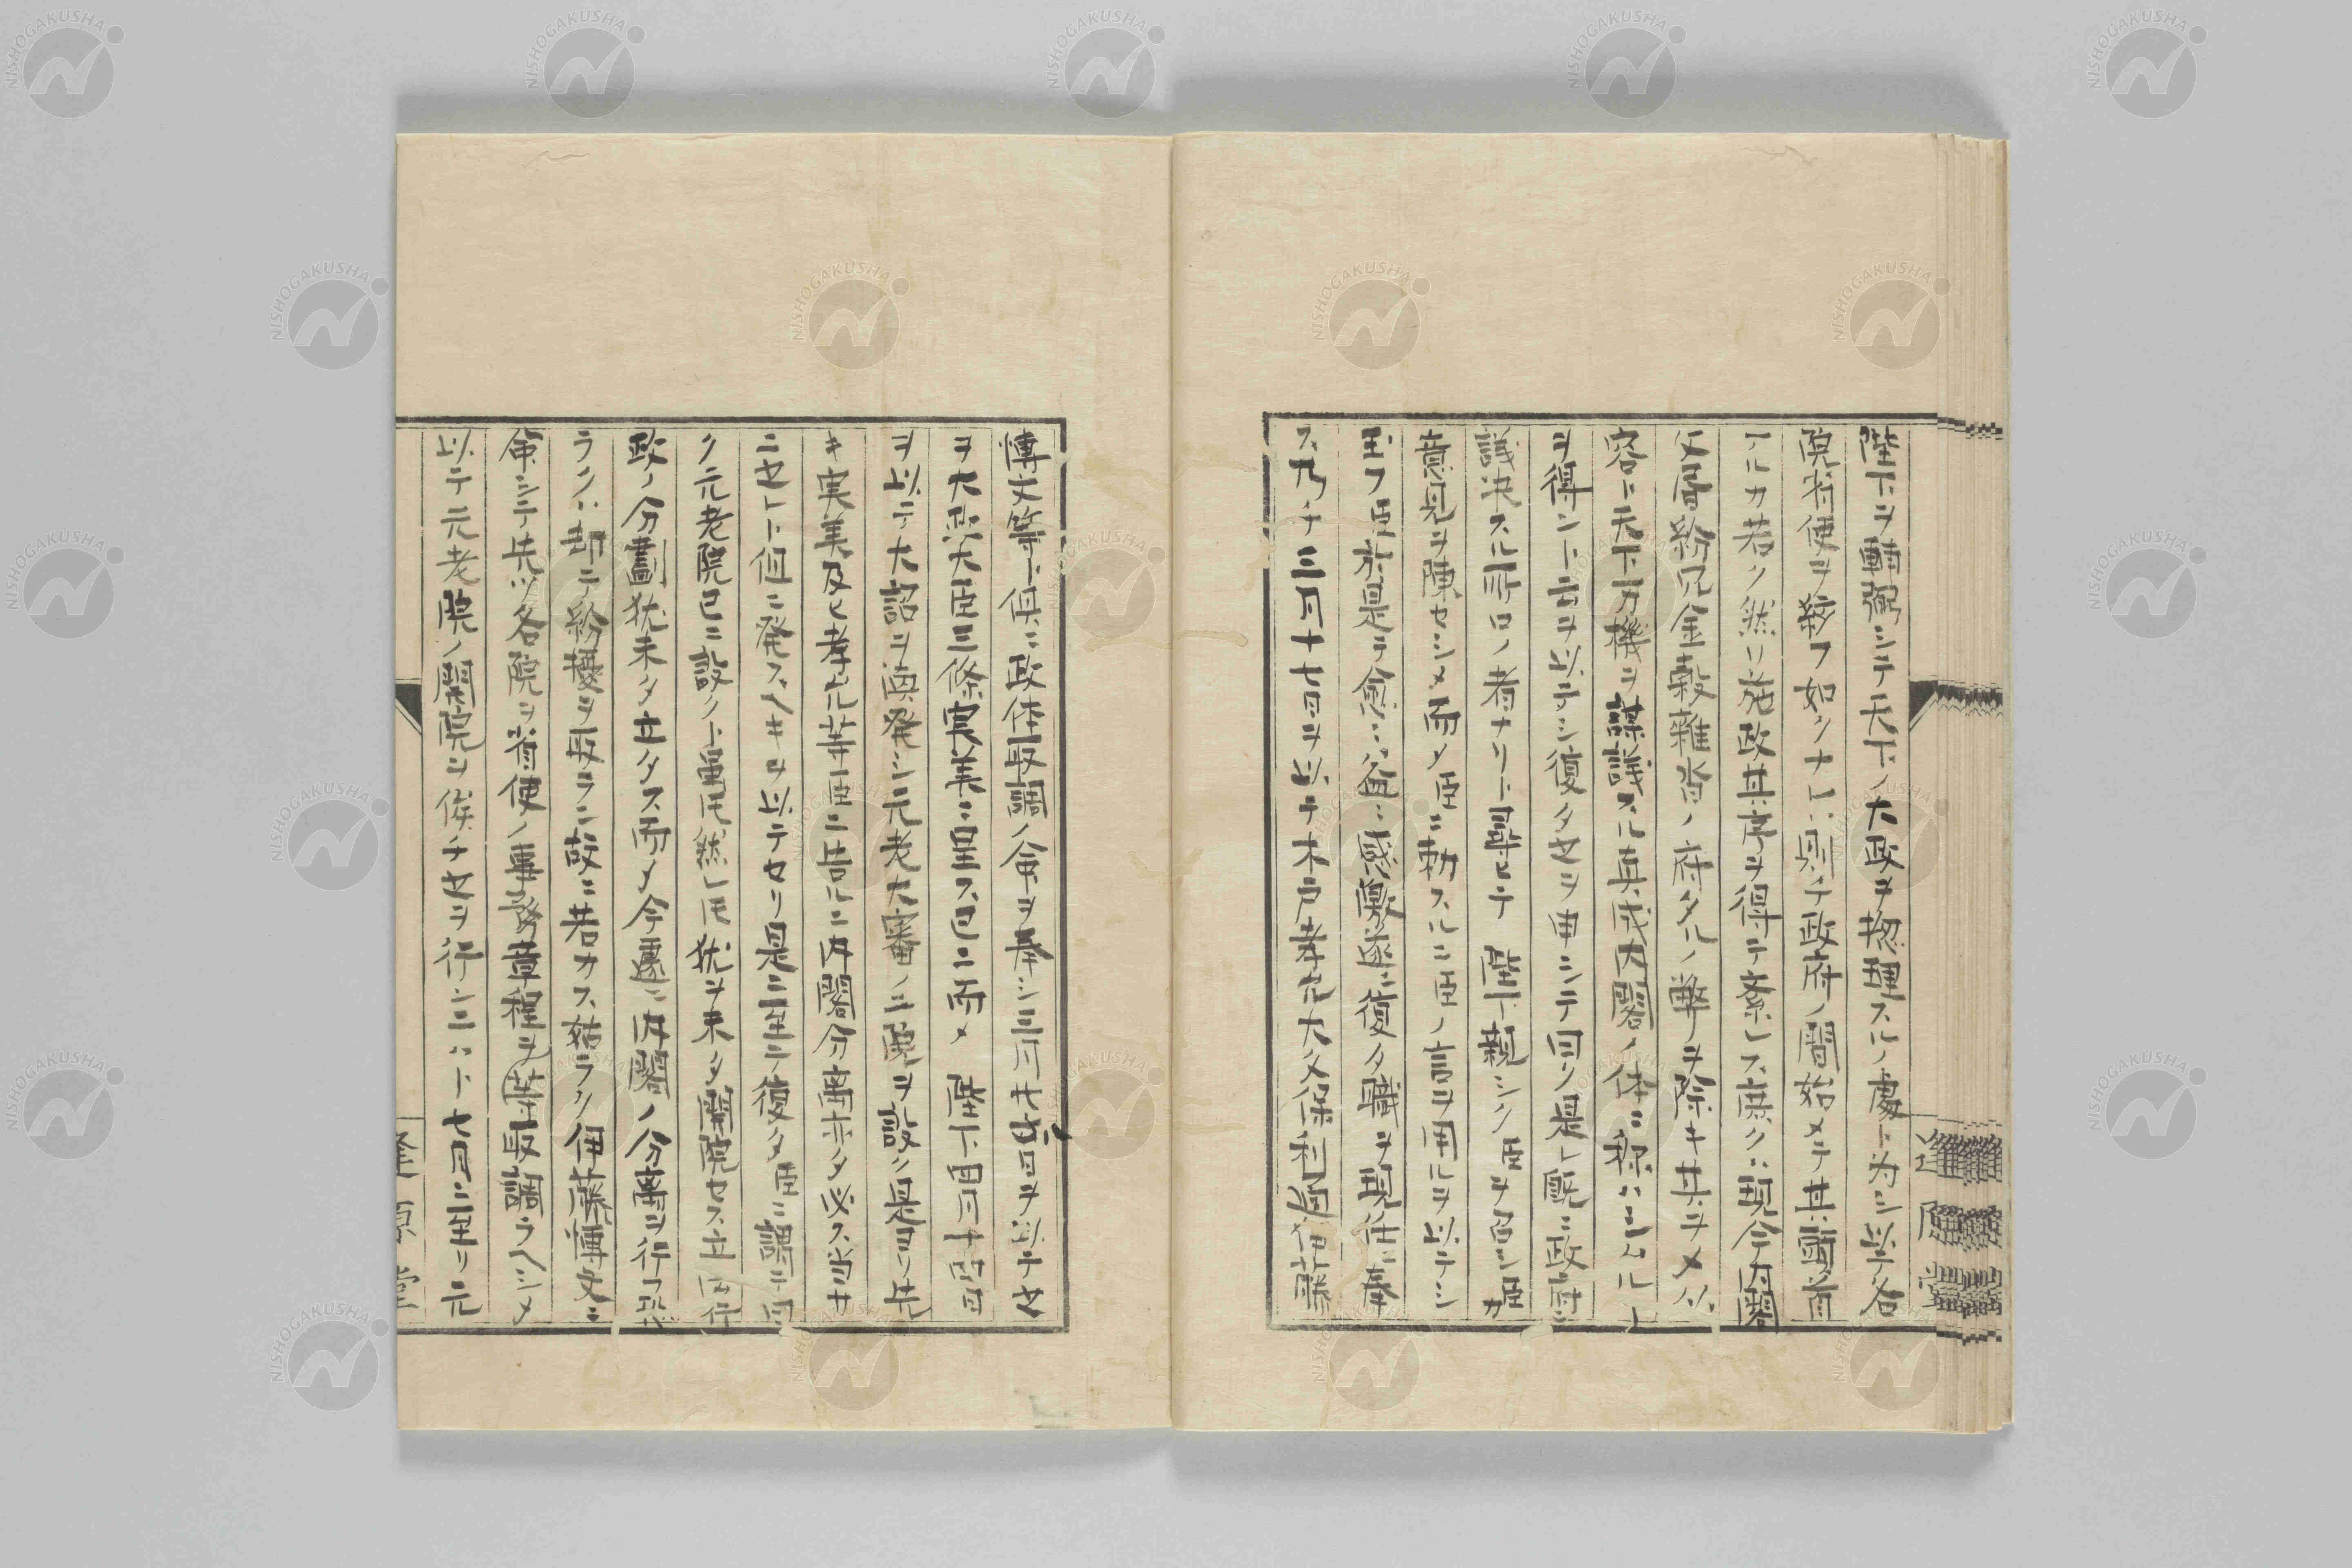 陛下ヲ輔弼シテ天下ノ大政ヲ惣理スルノ處ト為シ以テ各
院省使ヲ絞フ如クナレハ則チ政府ノ関始メテ其頭首
アルカ若ク然リ施政其序ヲ得テ紊レス庶クハ現今内閣
文層紛冗金穀雑沓ノ府タルノ弊ヲ除キ其ヲメ以
容ニ天下万機ヲ謀議スル真成内閣ノ体ニ称ハシムル
ヲ得ント云ヲ以テシ復タセヲ申シテ曰ク是レ既ニ政府
議决スル所ロノ者ナリト尋ヒテ 陛下親シク臣ヲ召シ臣カ
意見ヲ陳セシメ而メ臣ニ勅スルニ臣ノ言ヲ用ルヲ以テシ
玉フ臣於是テ愈〻益〻感激遂ニ復タ職ヲ現任ニ奉
ス乃チ三月十七日ヲ以テ木戸孝允大久保利通伊藤
博文等ト倶ニ政体取調ノ命ヲ奉シ三月廿
ヲ大政大臣三條実美ニ呈ス已ニ而メ 陛下四月十四日
ヲ以テ大詔ヲ渙発シ元老大審ノ二院ヲ設ク是ヨリ先
キ実美及ヒ孝允等臣ニ告ルニ内閣分離亦タ必ス当サ
ニセレト但ニ発スヘキヲ以テセリ是ニ至テ復タ臣ニ謂テ曰
ク元老院已ニ設クト虽氏然レ氏犹ヲ未タ開院セス立
政ノ分劃犹未タ立タス而メ今遽ニ内閣ノ分離ヲ行フ
ラハ却テ紛擾ヲ取ラン故ニ若カス姑ラク伊藤博文ニ
命シテ先ツ各院ヲ省使ノ事務章程ヲ等取調ラヘシメ
以テ元老院ノ開院ヲ俟チセヲ行シニハト七月ニ至リ元
進原堂